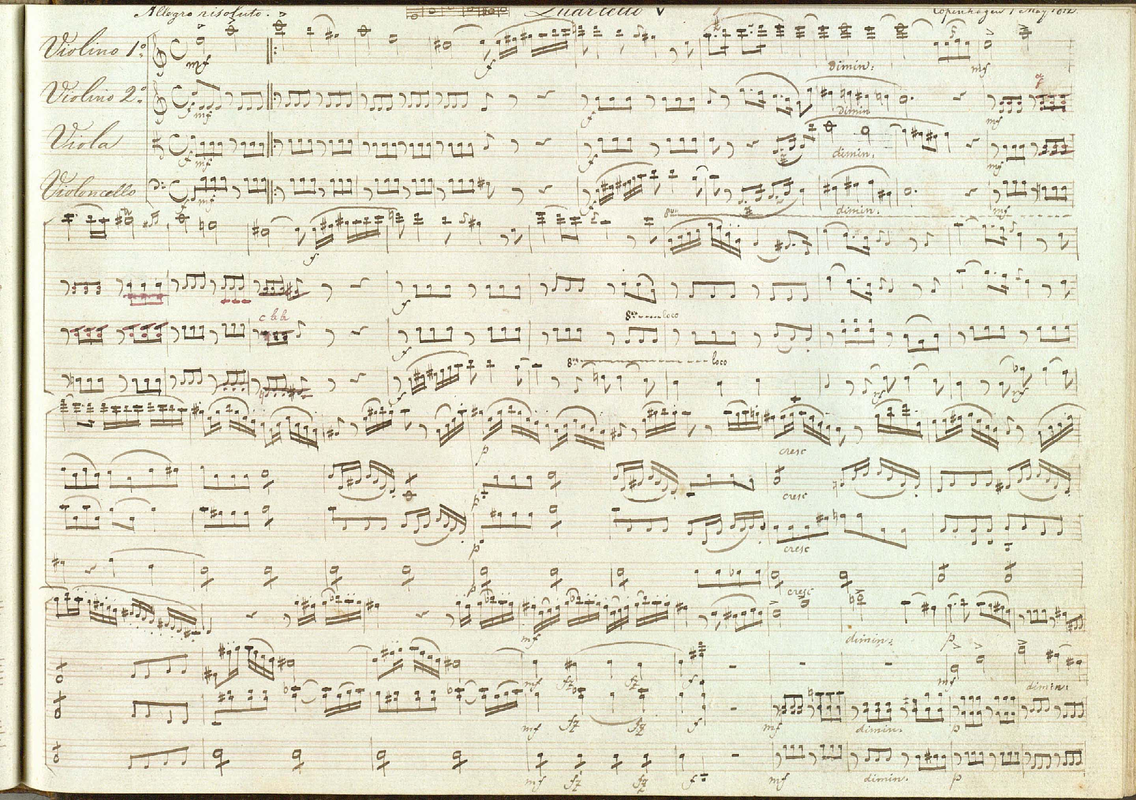 Allegro risoluto. Quartetto V Copenhagen 1 May
Violino 1º. mf f Dimin: mf
Violino 2º. mf f Dimin mf
Viola mf f dimin. mf
Violoncello mf f dimin. mf
f 8va
f
c b b 8va loco
f
8va loco
f
p cresc
p cresc
p cresc
cresc
mf dimin: p
mf fz fz f mf dimin:
mf fz fz f mf dimin. p
mf fz fz f mf dimin. p